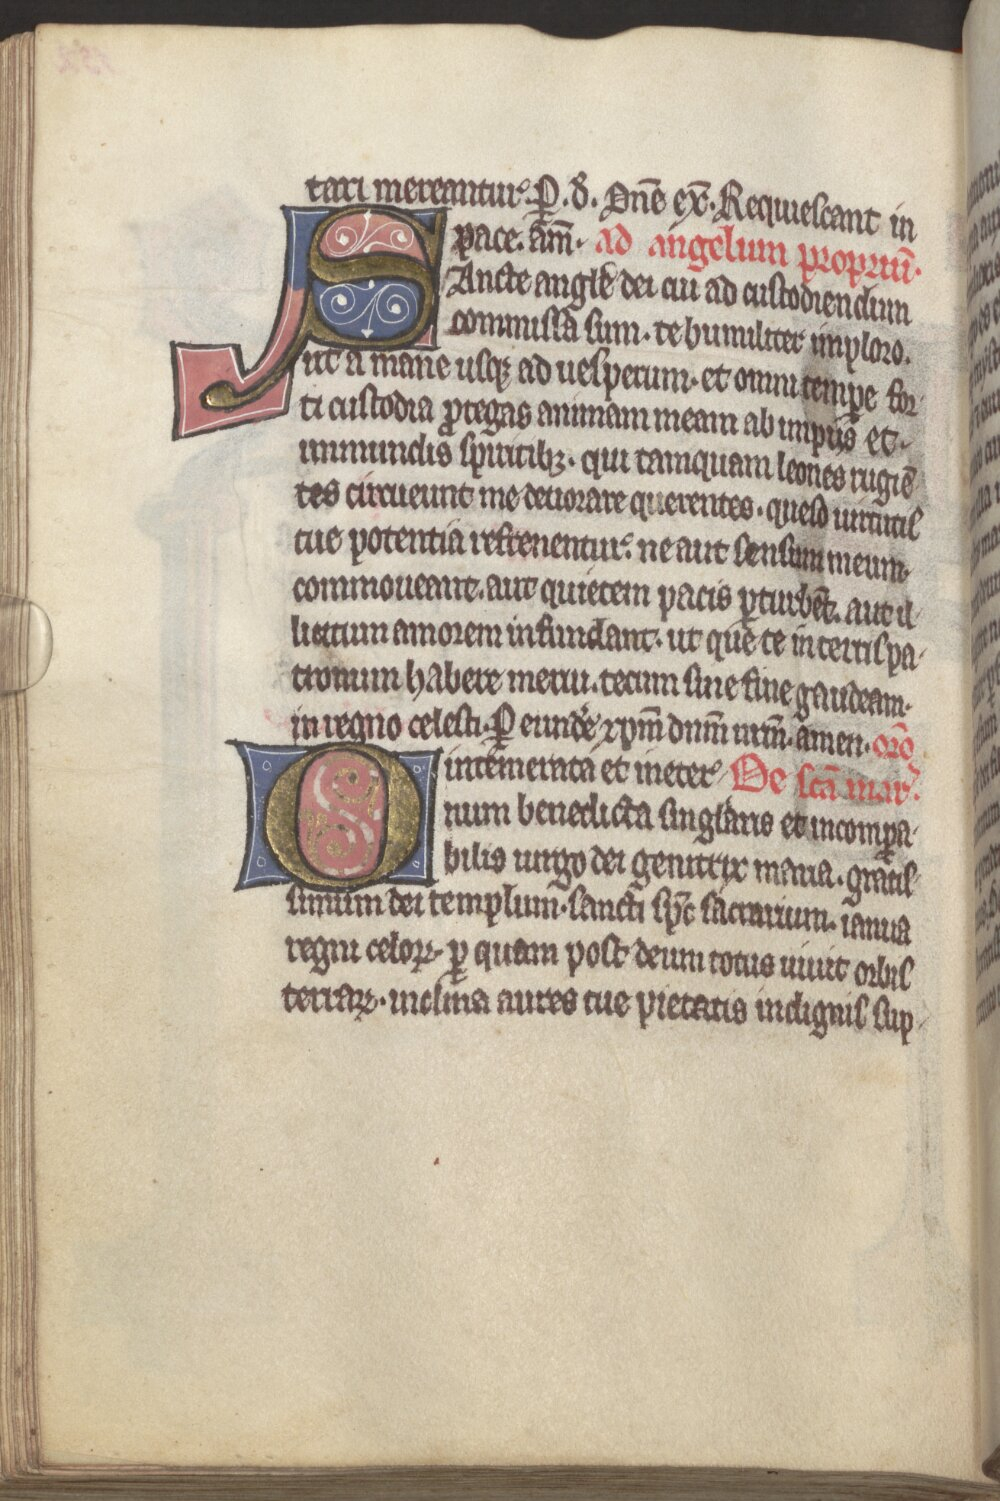 tari mereantur. P̱. d̄. Dn̄e ex̄. Requiescant in
pace. am̄. ad angelum propriū.
Sancte angl̄e dei cui ad custodiendum
commissa sum. te humiliter imploro.
ut a mane usqꝫ ad uesperum. et omni tempe for
ti custodia ꝓtegas animam meam ab impiis et
inmundis spiritibꝫ. qui tamquam leones rugiē
tes circueunt me deuorare querentes. queso uirtutis
tue potentia refrenentur. ne aut sensum meum
commoueant. aut quietem pacis ꝑturbēt. aut il
licitum amorem infundant. ut que te in terris pa
tronum habere merui. tecum sine fine gaudeam.
in regno celesti. P eundē xp̄m dnm̄ nrm̄. amen. orō
O intemerata et in eter De scā mar.
num benedicta singlaris et incompa
bilis uirgo dei genitrix maria. gratis
simum dei templum. sancti sp̄c sacrarium. ianua
regni celoꝝ. ꝑ quam post deum totus uiuit orbis
terraꝝ. inclina aures tue pietatis indignis sup